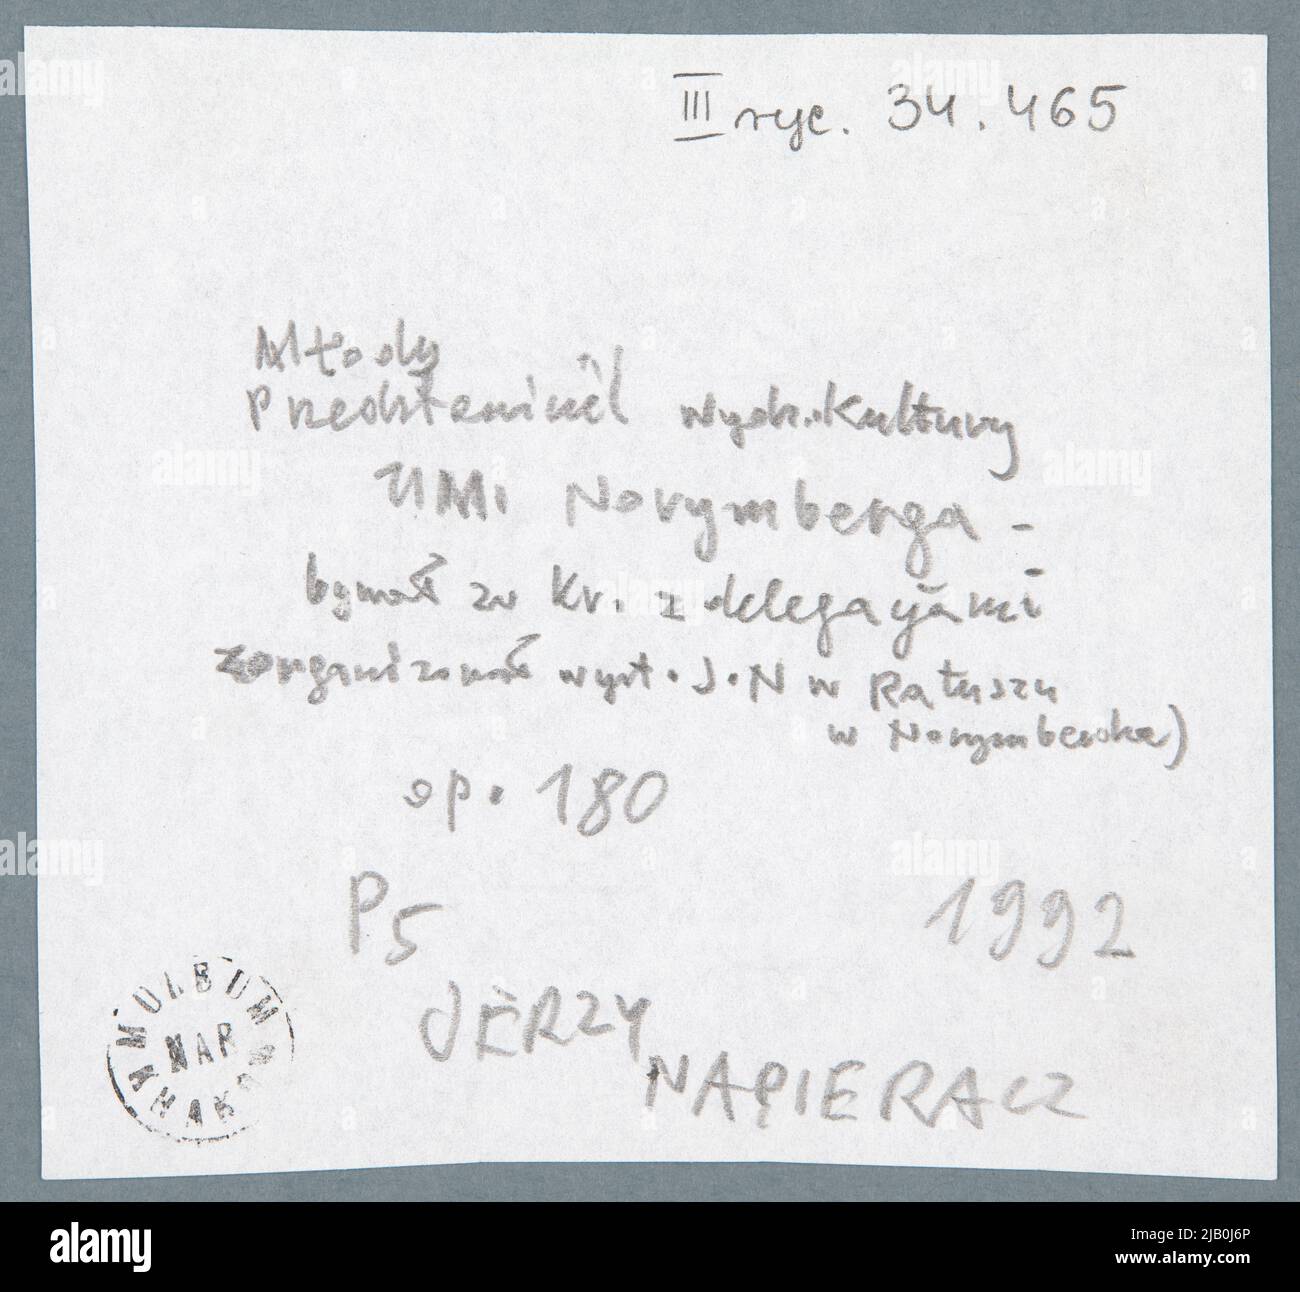 III ryc. 34.465
Młody
Przedstawiciel wydz. Kultury
UMi Norymberga -
bywał w Kr. z delegacjami
zorganizował wyst. J.N w Ratuszu
w Norymberdze)
op. 180
P5
1992
JERZY
NAPIERACZ
MUSEUM
NAR
KRAKÓW
alamy
Image ID: 2JB0J6P
www.alamy.com